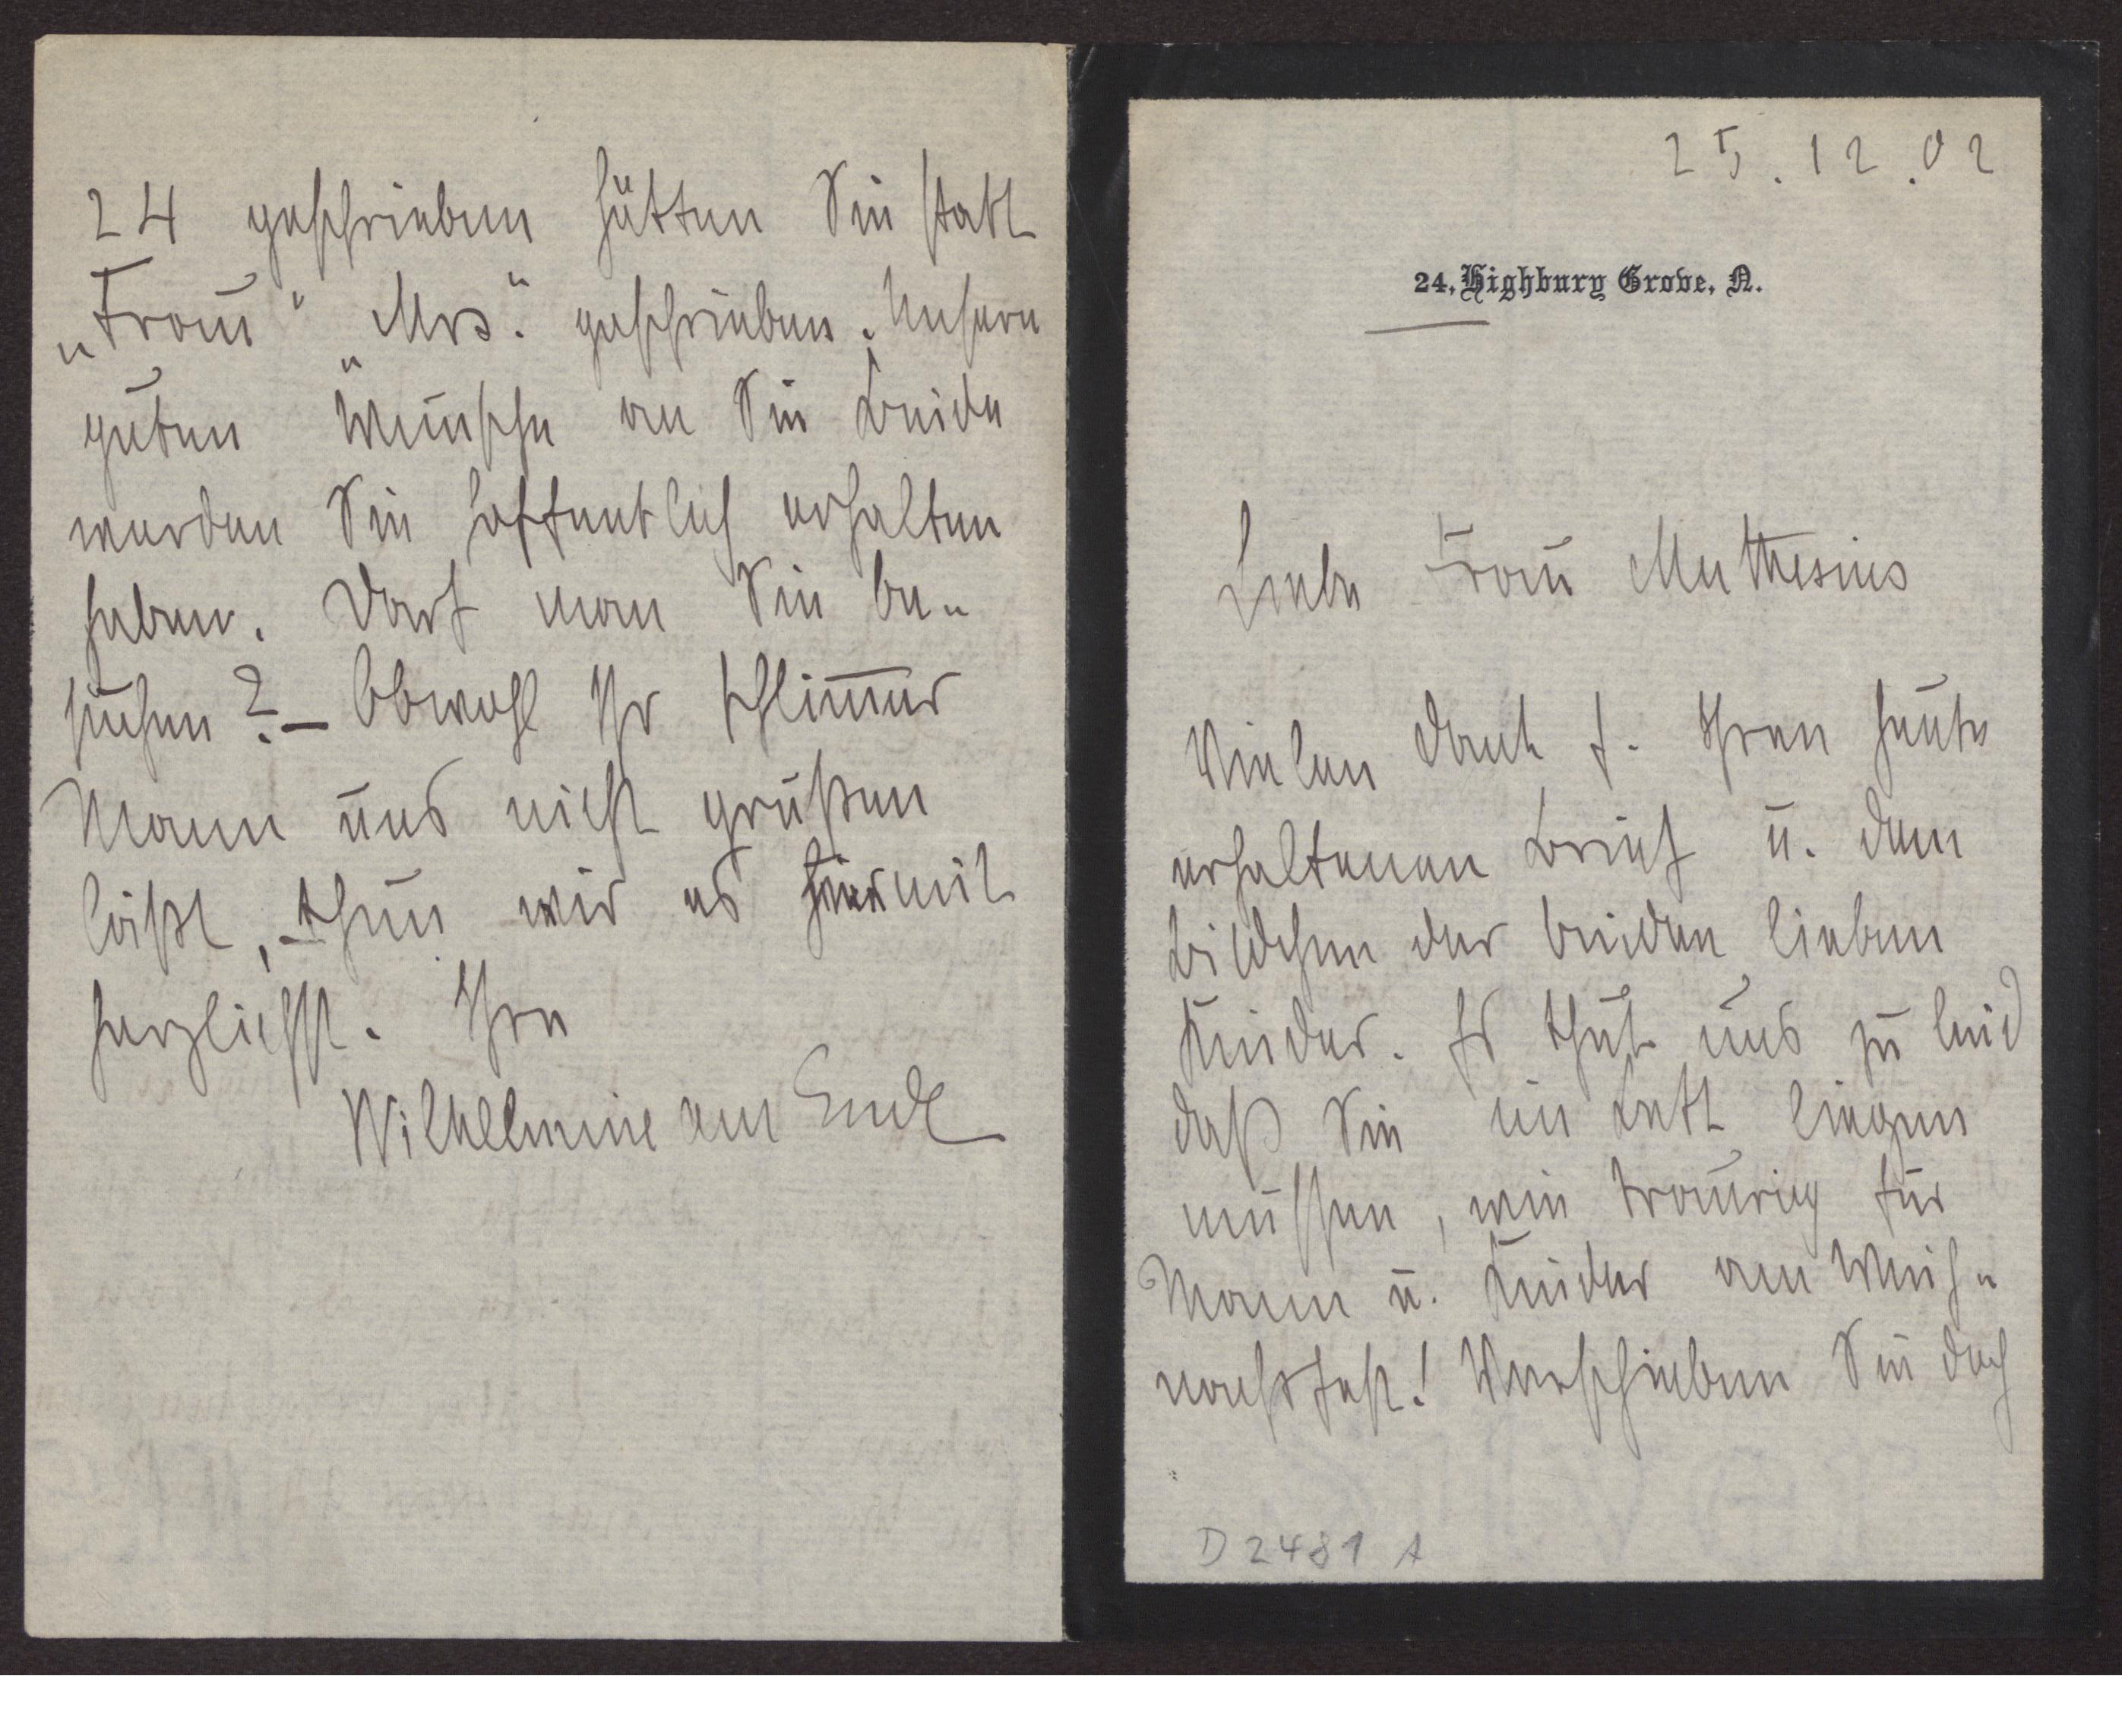 25.12.02
24, Highbury Grove, N.
Liebe Frau Muthesius
Vielen Dank f. Ihren heute
erhaltenen Brief u. dem
Bildchen der beiden lieben
Kinder. Es thut uns zu leid
daß Sie im Bett liegen
müssen, wie traurig für
Mann u. Kinder am Weih-
nachtsfest! Verschieben Sie doch
D 2481 A
24 geschrieben hätten Sie statt
„Frau" „Mrs." geschrieben. Unsere
guten Wünsche an Sie Beide
werden Sie hoffentlich erhalten
haben. Darf man Sie be-
suchen? – Obwohl Ihr schlimmer
Mann uns nicht grüßen
läßt, thun wir es hiermit
herzlichst. Ihre
Wilhelmine am Ende